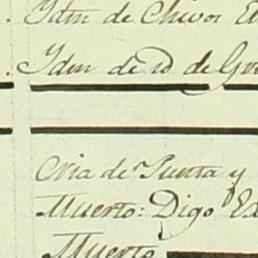 Idem de Chivos
Idem de id de
Cria de Junta y
Muerto: Digo
Muerto